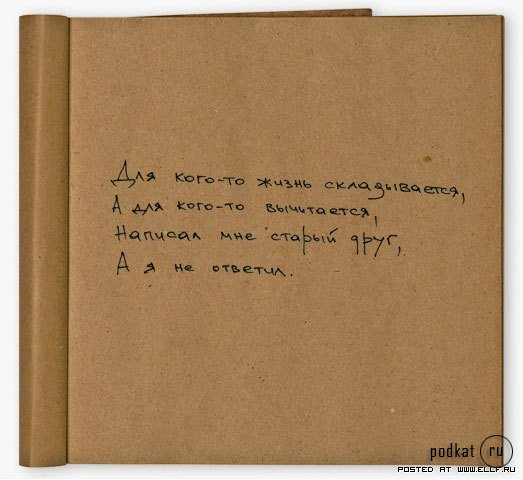 Для кого-то жизнь складывается,
А для кого-то вычитается,
Написал мне старый друг,
А я не ответил.
podkat ru
POSTED AT WWW.ELLF.RU